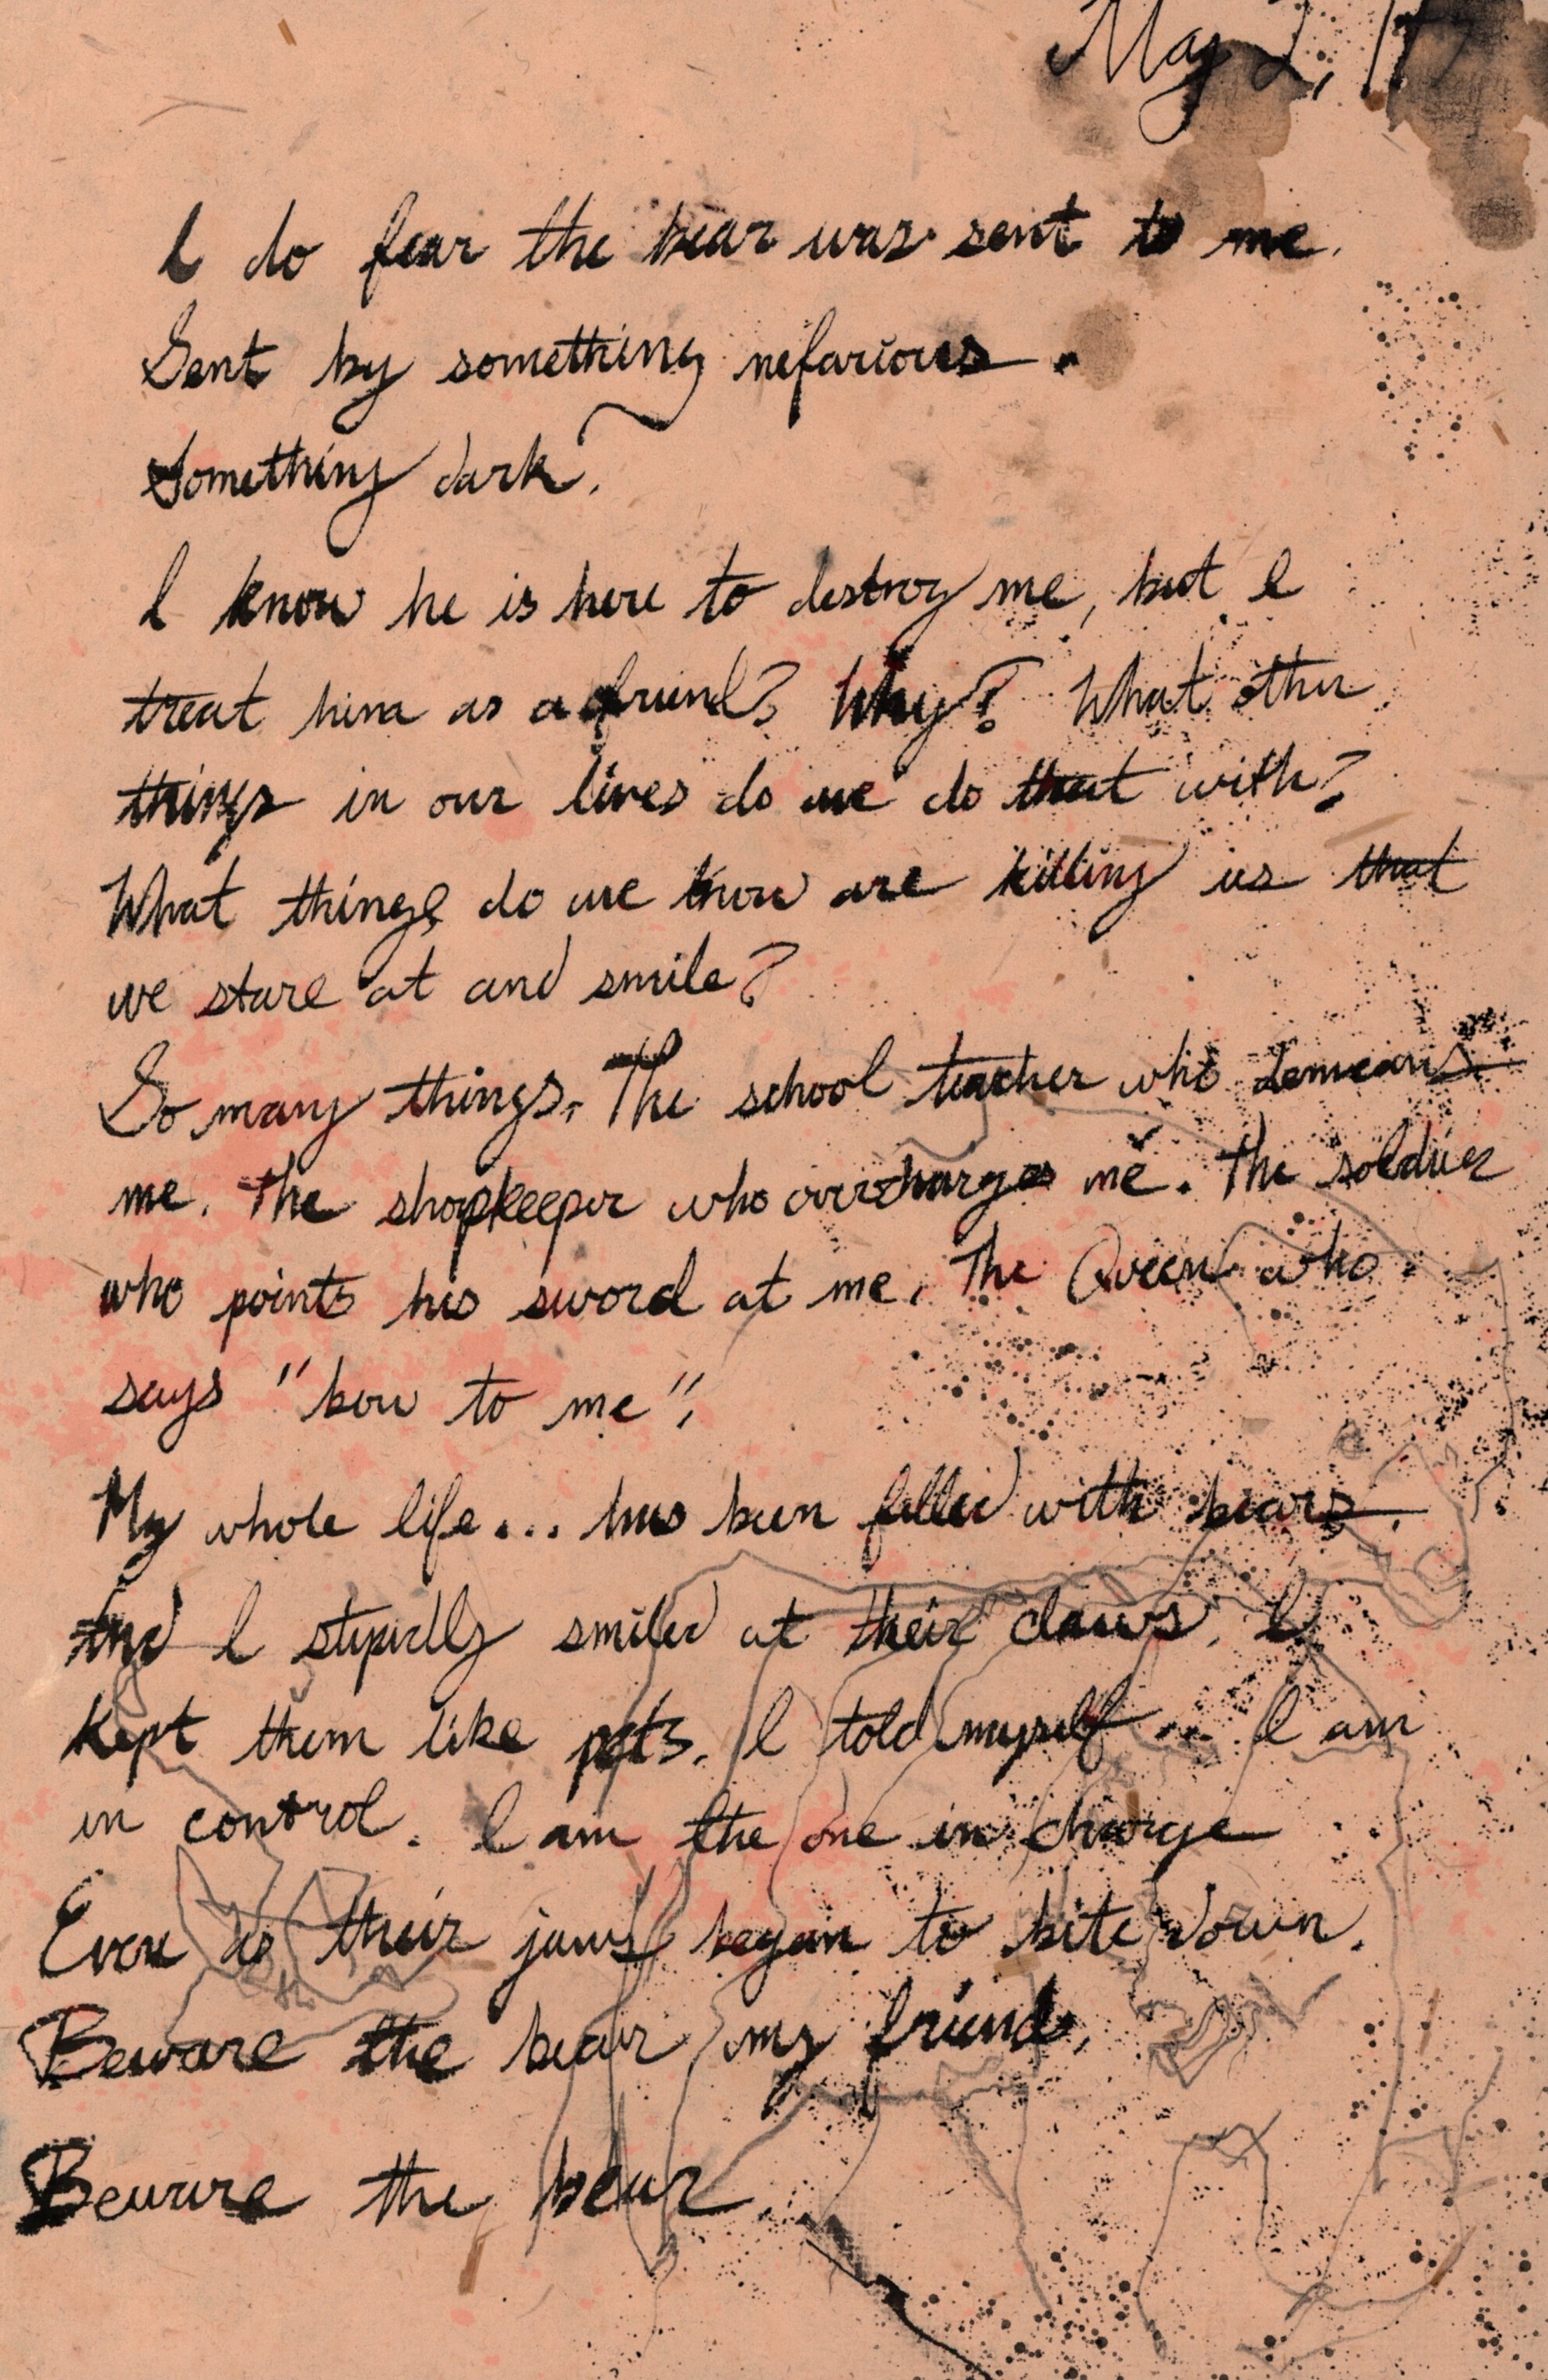 May 2, 17
I do fear the bear was sent to me.
Sent by something nefarious.
Something dark.
I know he is here to destroy me, but I
treat him as a friend? Why? What other
things in our lives do we do that with?
What things do we know are killing us that
we stare at and smile?
So many things. The school teacher who demeans
me. The shopkeeper who overcharges me. The soldier
who points his sword at me. The Queen who
says "bow to me".
My whole life... has been filled with bears.
And I stupidly smiled at their claws. I
kept them like pets. I told myself... I am
in control. I am the one in charge
Even as their jaws began to bite down.
Beware the bear my friend.
Beware the bear.